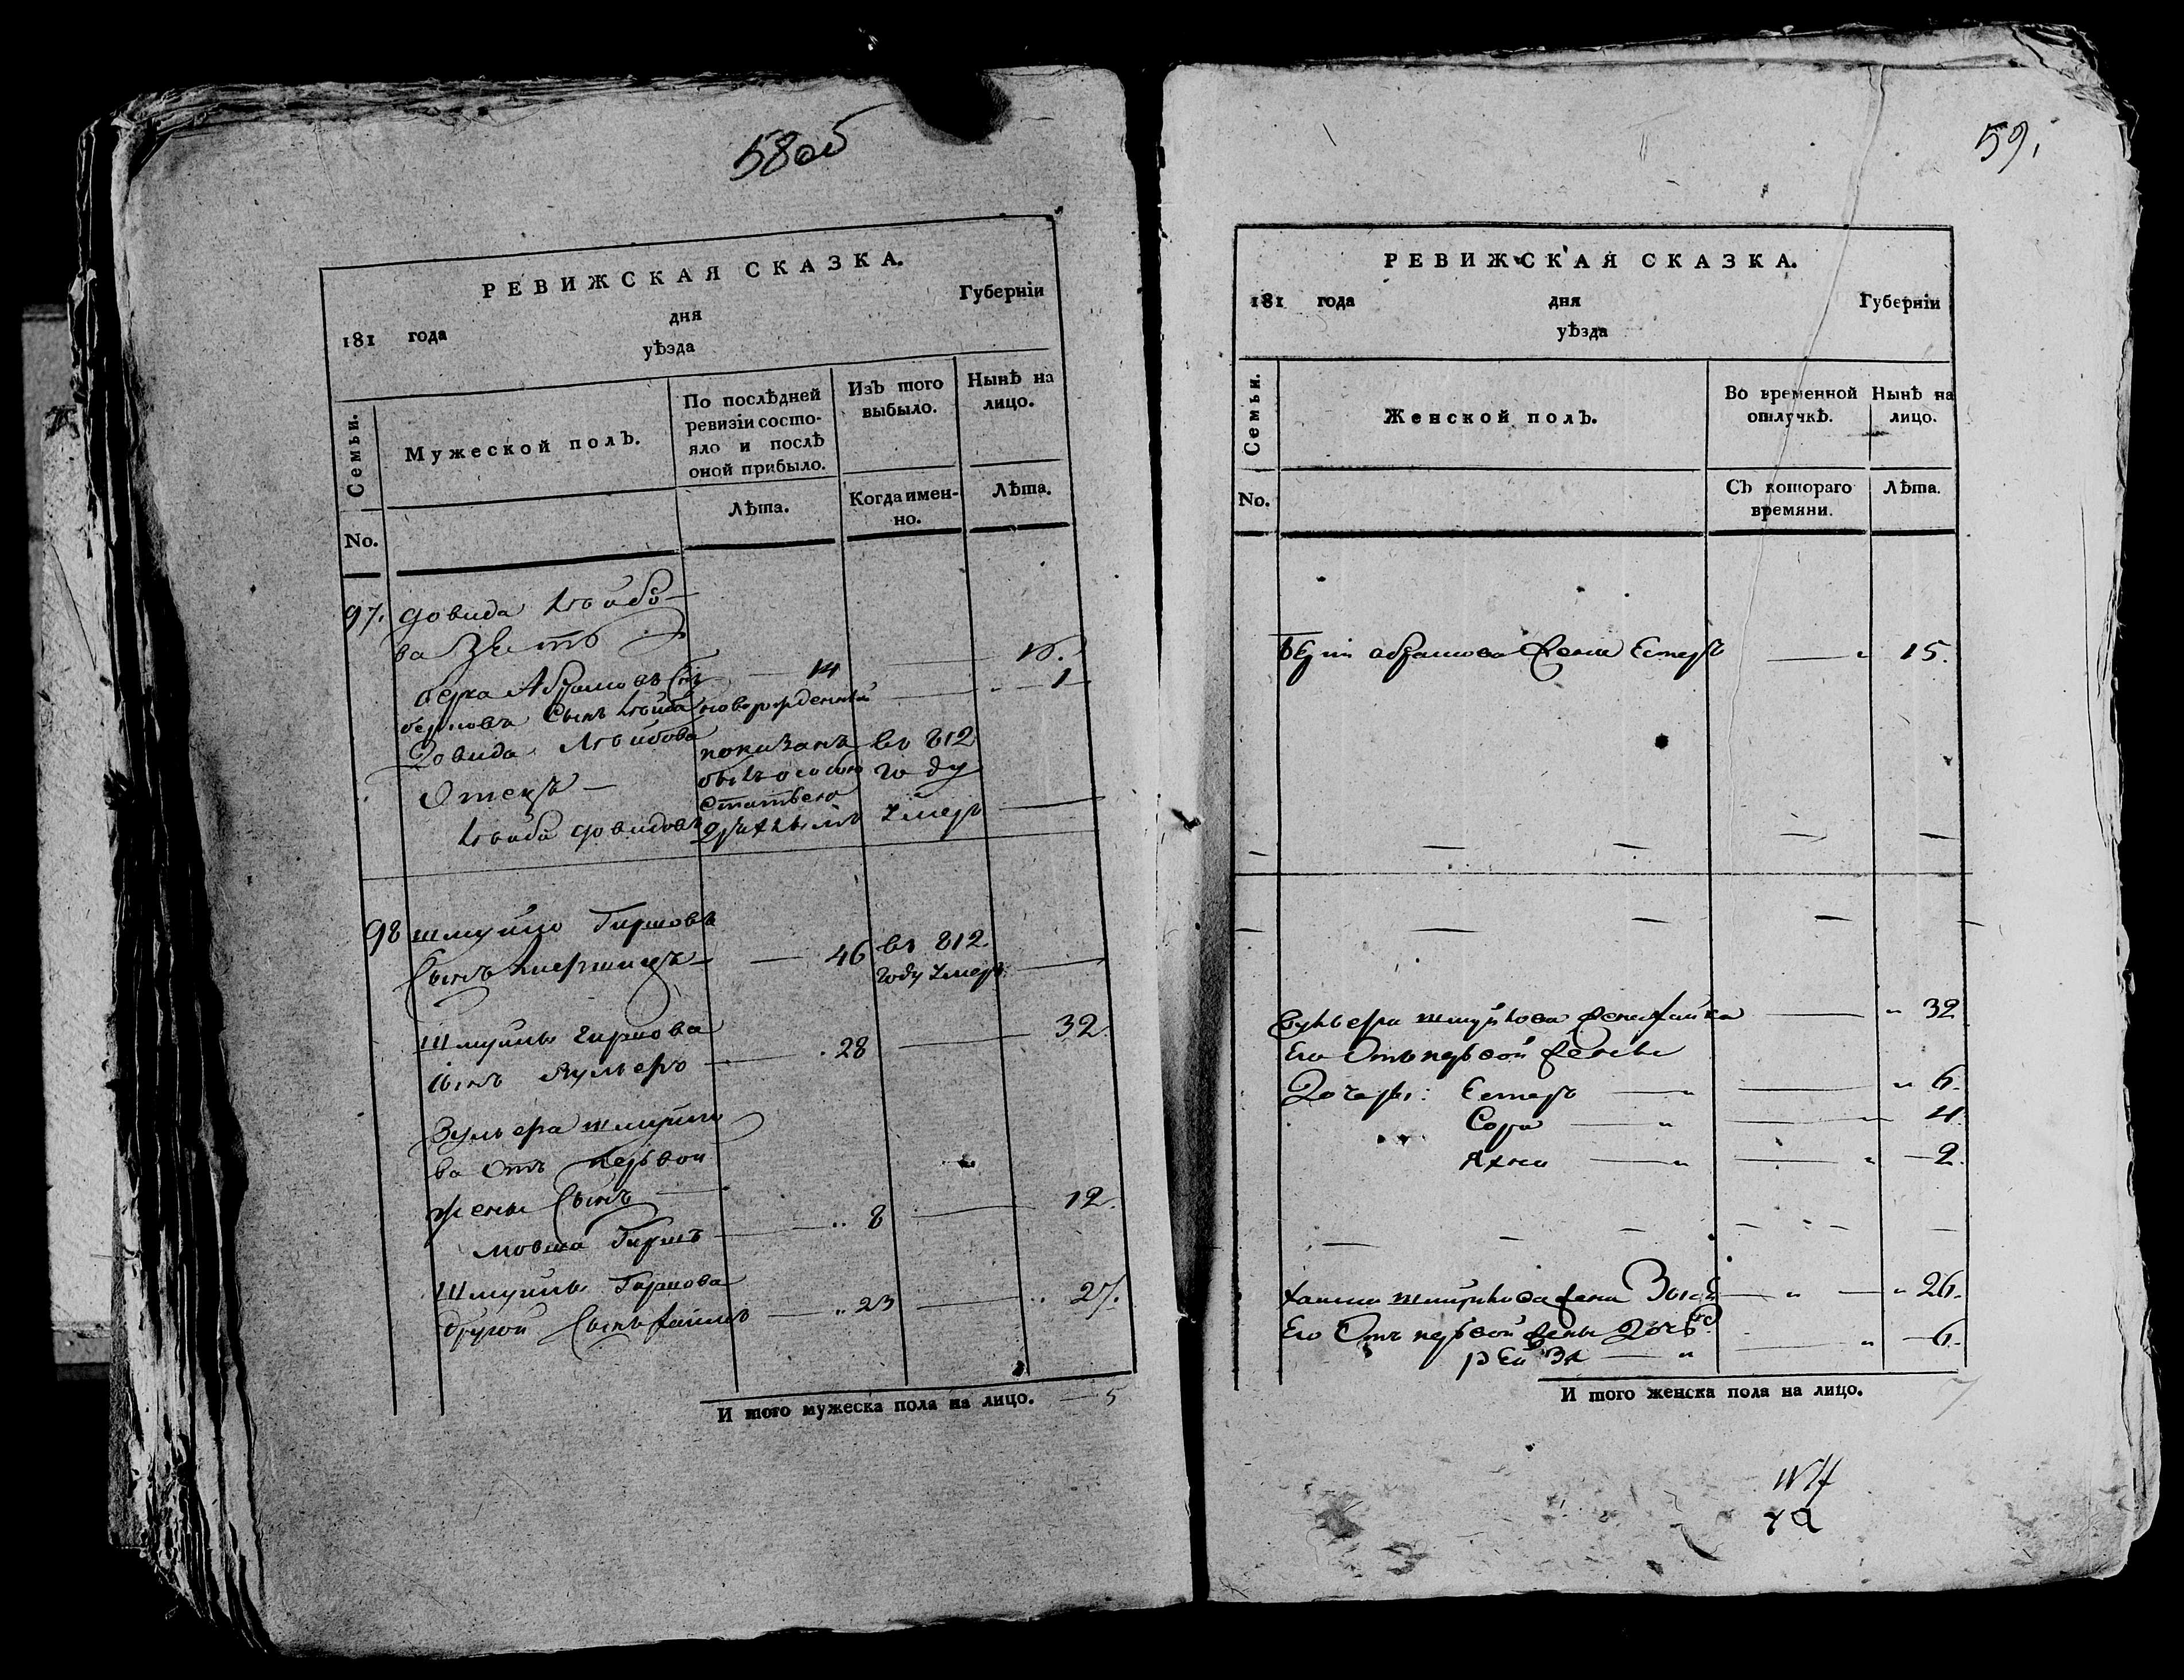 58 об
РЕВИЖСКАЯ СКАЗКА.
181 года дня Губерніи
уѣзда
Семьи. Мужеской полъ. По послѣдней ревизіи состояло и послѣ оной прибыло. Изъ того выбыло. Нынѣ на лицо.
No. Лѣта. Когда именно. Лѣта.
97. Довида Лѣибо-
ва Зять
берка Абрамовъ 14
берковъ Сынъ Лѣиба новорожденный 1
Довида Лѣибова показанъ въ 812
Отецъ — году
статьею
Лѣиба Довидовъ умеръ
98 Шмуйло Гиршовъ
Сынъ 46 въ 812
году умеръ
Шмуйлы Гиршова 32.
Сынъ Зульеръ 28
Зульера Шмуйло
ва Отъ первой
жены Сынъ
Мовша Гиршъ 8 12.
Шмуйлы Гиршова
другой Сынъ 23 27.
И того мужеска пола на лицо. 5
59.
РЕВИЖСКАЯ СКАЗКА.
181 года дня Губерніи
уѣзда
Семьи. Женской полъ. Во временной отлучкѣ. Нынѣ на лицо.
No. Съ котораго времяни. Лѣта.
абрамова жена Естеръ 15.
Зульера шмуйлова жена 32
Его Отъ первой жены
Дочери: Естеръ 6.
Сора 4.
Яхна 2.
шмуйлова жена 26.
Его Отъ первой жены Дочь 6.
И того женска пола на лицо. 7